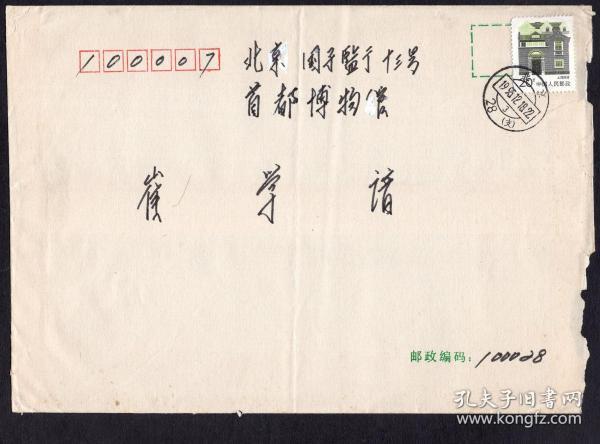 100007
北京 国子监街 十三号
首都博物馆
崔学谙
20 中国人民邮政
1993.12.18.22
28
邮政编码：100028
孔夫子旧书网
www.kongfz.com